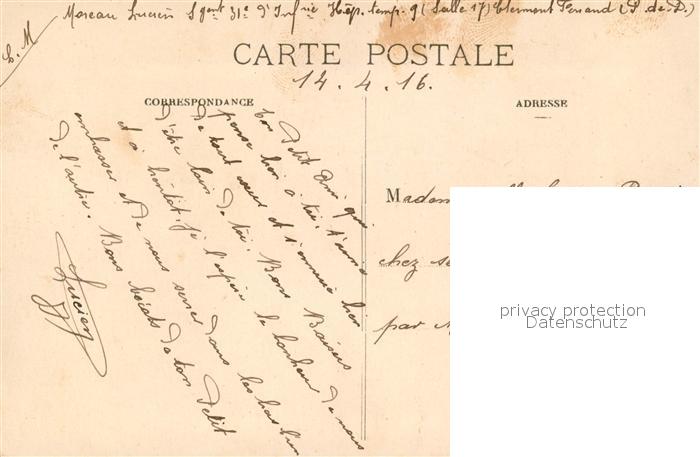 Moreau Lucien Sgent 31e d'Infrie Hôp. temp. 9 (Salle 17) Clermont Ferrand (P. de. D.)
L. M
CARTE POSTALE
14. 4. 16.
CORRESPONDANCE
ADRESSE
Ton Petit Ami qui
pense bien à toi, t'aime
de tout cœur et s'ennuie bien
d'être loin de toi. Bons Baisers
et à bientôt, je l'espère le bonheur de nous
embrasser et de nous serrer dans les bras l'un
de l'autre. Bons baisers de ton Petit
Lucien
Madam
chez
par
privacy protection
Datenschutz